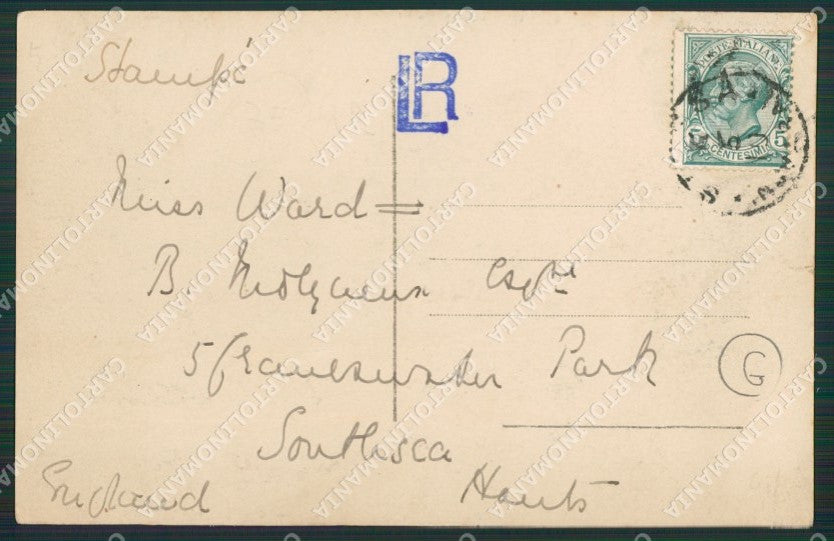 Stampe
LR
POSTE ITALIANE
CENTESIMI 5
Miss Ward =
B. Molyneux Esqre
5 Craneswater Park
Southsea
Hants
England
G
CARTOLINOMANIA